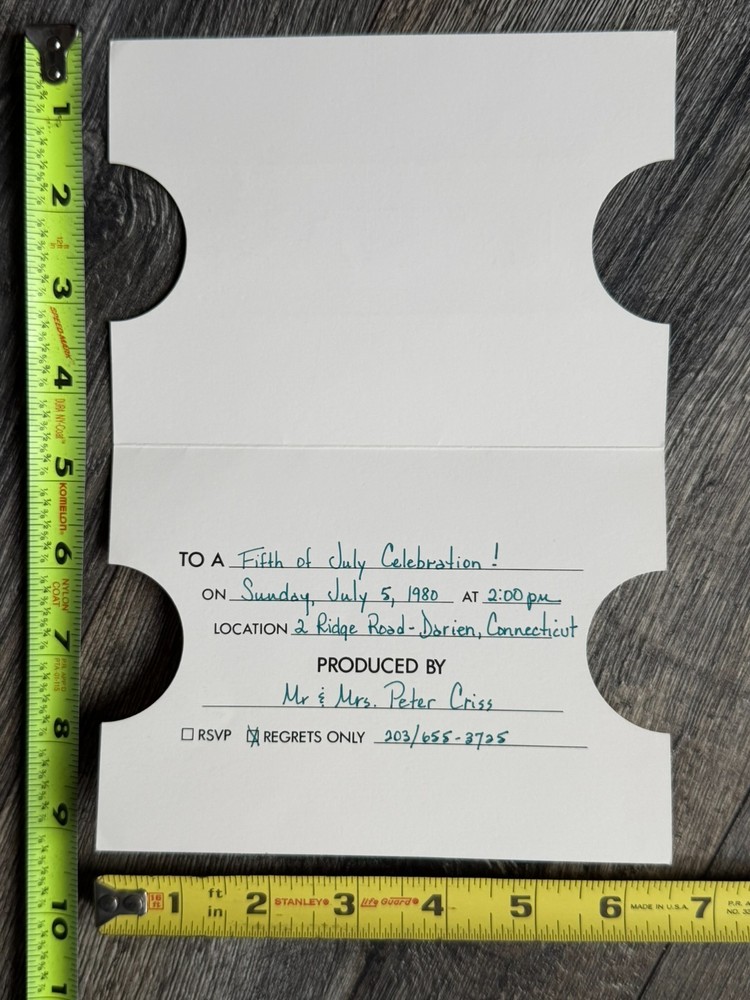 TO A Fifth of July Celebration!
ON Sunday, July 5, 1980 AT 2:00 pm
LOCATION 2 Ridge Road - Darien, Connecticut
PRODUCED BY
Mr & Mrs. Peter Criss
☐ RSVP ☒ REGRETS ONLY 203/655-3725
1
2
3
SPEED MARK
4
DURA NY-COAT
5
KOMELON
6
NYLON COAT
7
8
9
10
1 ft in 2 STANLEY® 3 Life Guard® 4 5 6 MADE IN U.S.A. 7